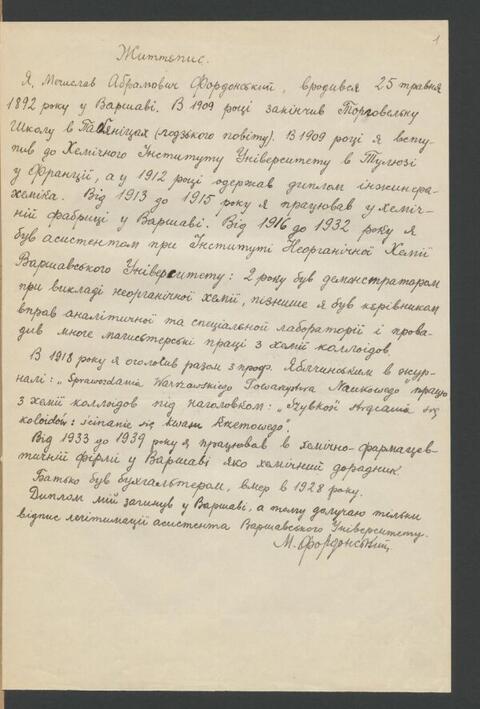 1
Життєпис.
Я, Мечислав Абрамович Фордонський, вродився 25 травня
1892 року у Варшаві. В 1909 році закінчив Торговельну
Школу в Пабяніцах (лодзького повіту). В 1909 році я всту-
пив до Хемічного Інституту Університету в Тулюзі
у Франції, а у 1912 році одержав диплом інженера-
хеміка. Від 1913 до 1915 року я працював у хеміч-
ній фабриці у Варшаві. Від 1916 до 1932 року я
був асистентом при Інституті Неорганічної Хемії
Варшавського Університету: 2 року був демонстратором
при викладі неорганічної хемії, пізнише я був керівником
вправ аналітичної та спеціальної лабораторії і прова-
див многе магістерські праці з хемії коллоідов.
В 1918 року я оголосив разом з проф. Яблчинським в жур-
налі: „Sprawozdania Warszawskiego Towarzystwa Naukowego" працю
з хемії коллоідов під наголовком:
koloidów: ścinanie się kwasu
Від 1933 до 1939 року я працював в хемічно-фармацев-
тичній фірмі у Варшаві яко хемічний дорадник.
Батько був бухгальтером, вмер в 1928 року.
Диплом мій загинув у Варшаві, а тому долучаю тільки
відпис легітимації асистента Варшавського Університету.
М. Фордонський